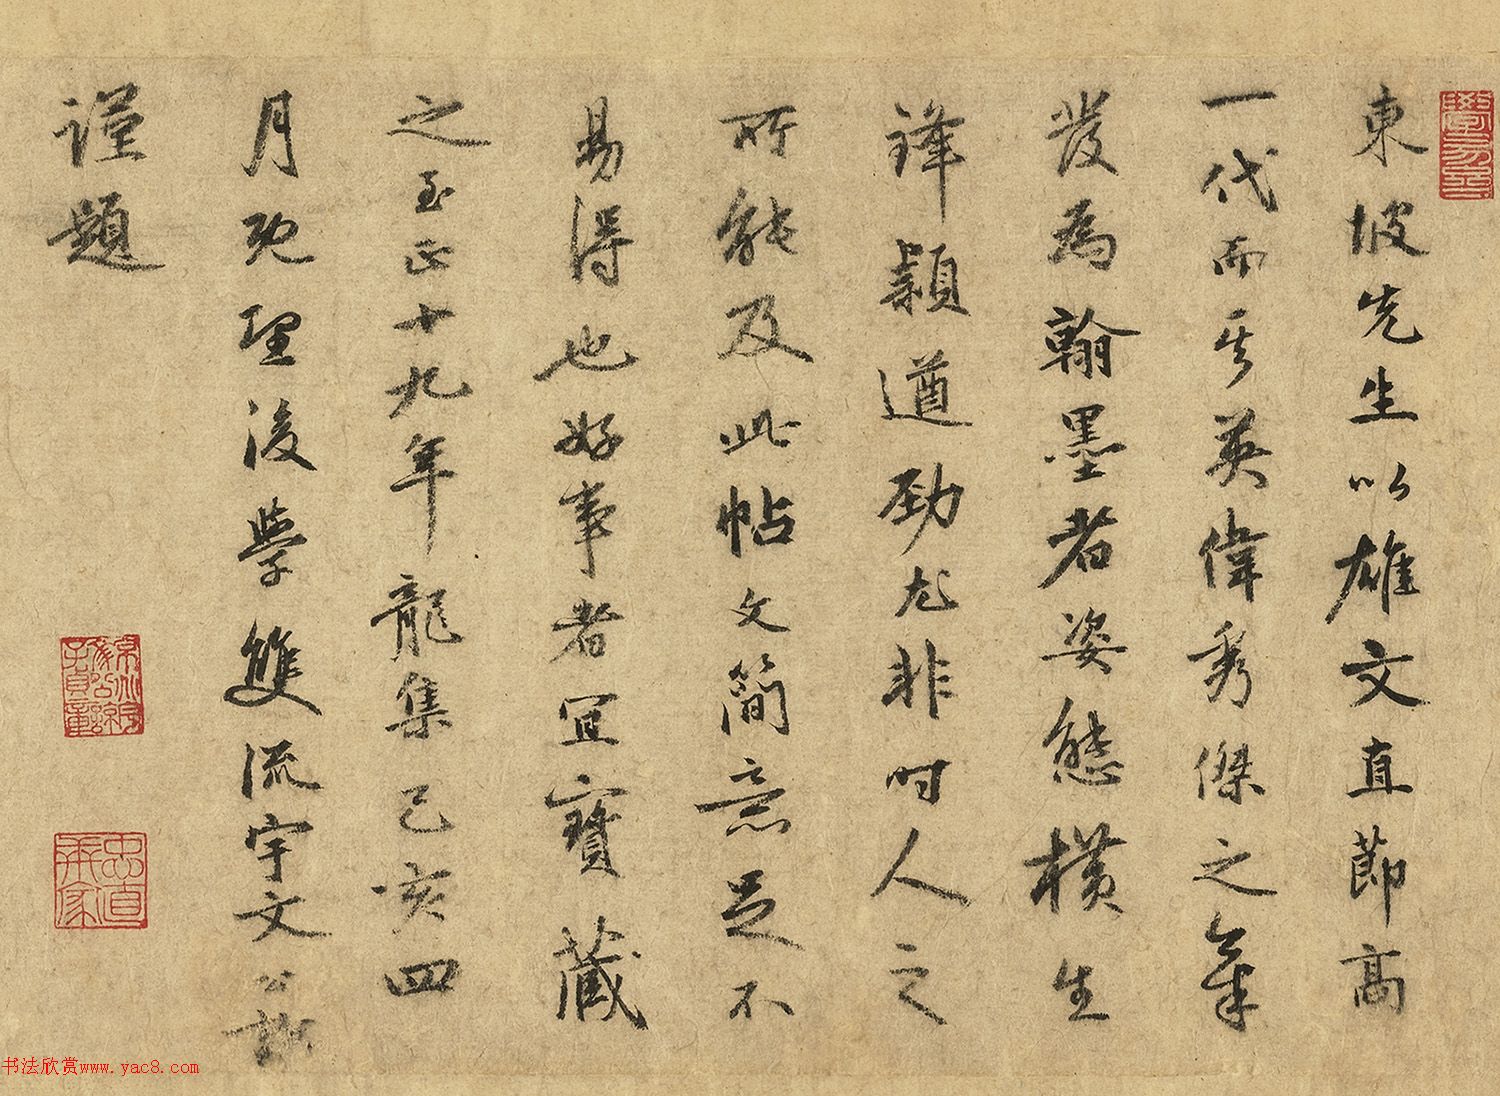 東坡先生以雄文直節高
一代而其英偉秀傑之氣
發為翰墨者姿態橫生
鋒穎遒勁尤非時人之
所能及此帖文簡意足不
易得也好事者宜寶藏
之至正十九年龍集己亥四
月既望後學雙流宇文公諒
謹題
忠直并家
书法欣赏www.yac8.com